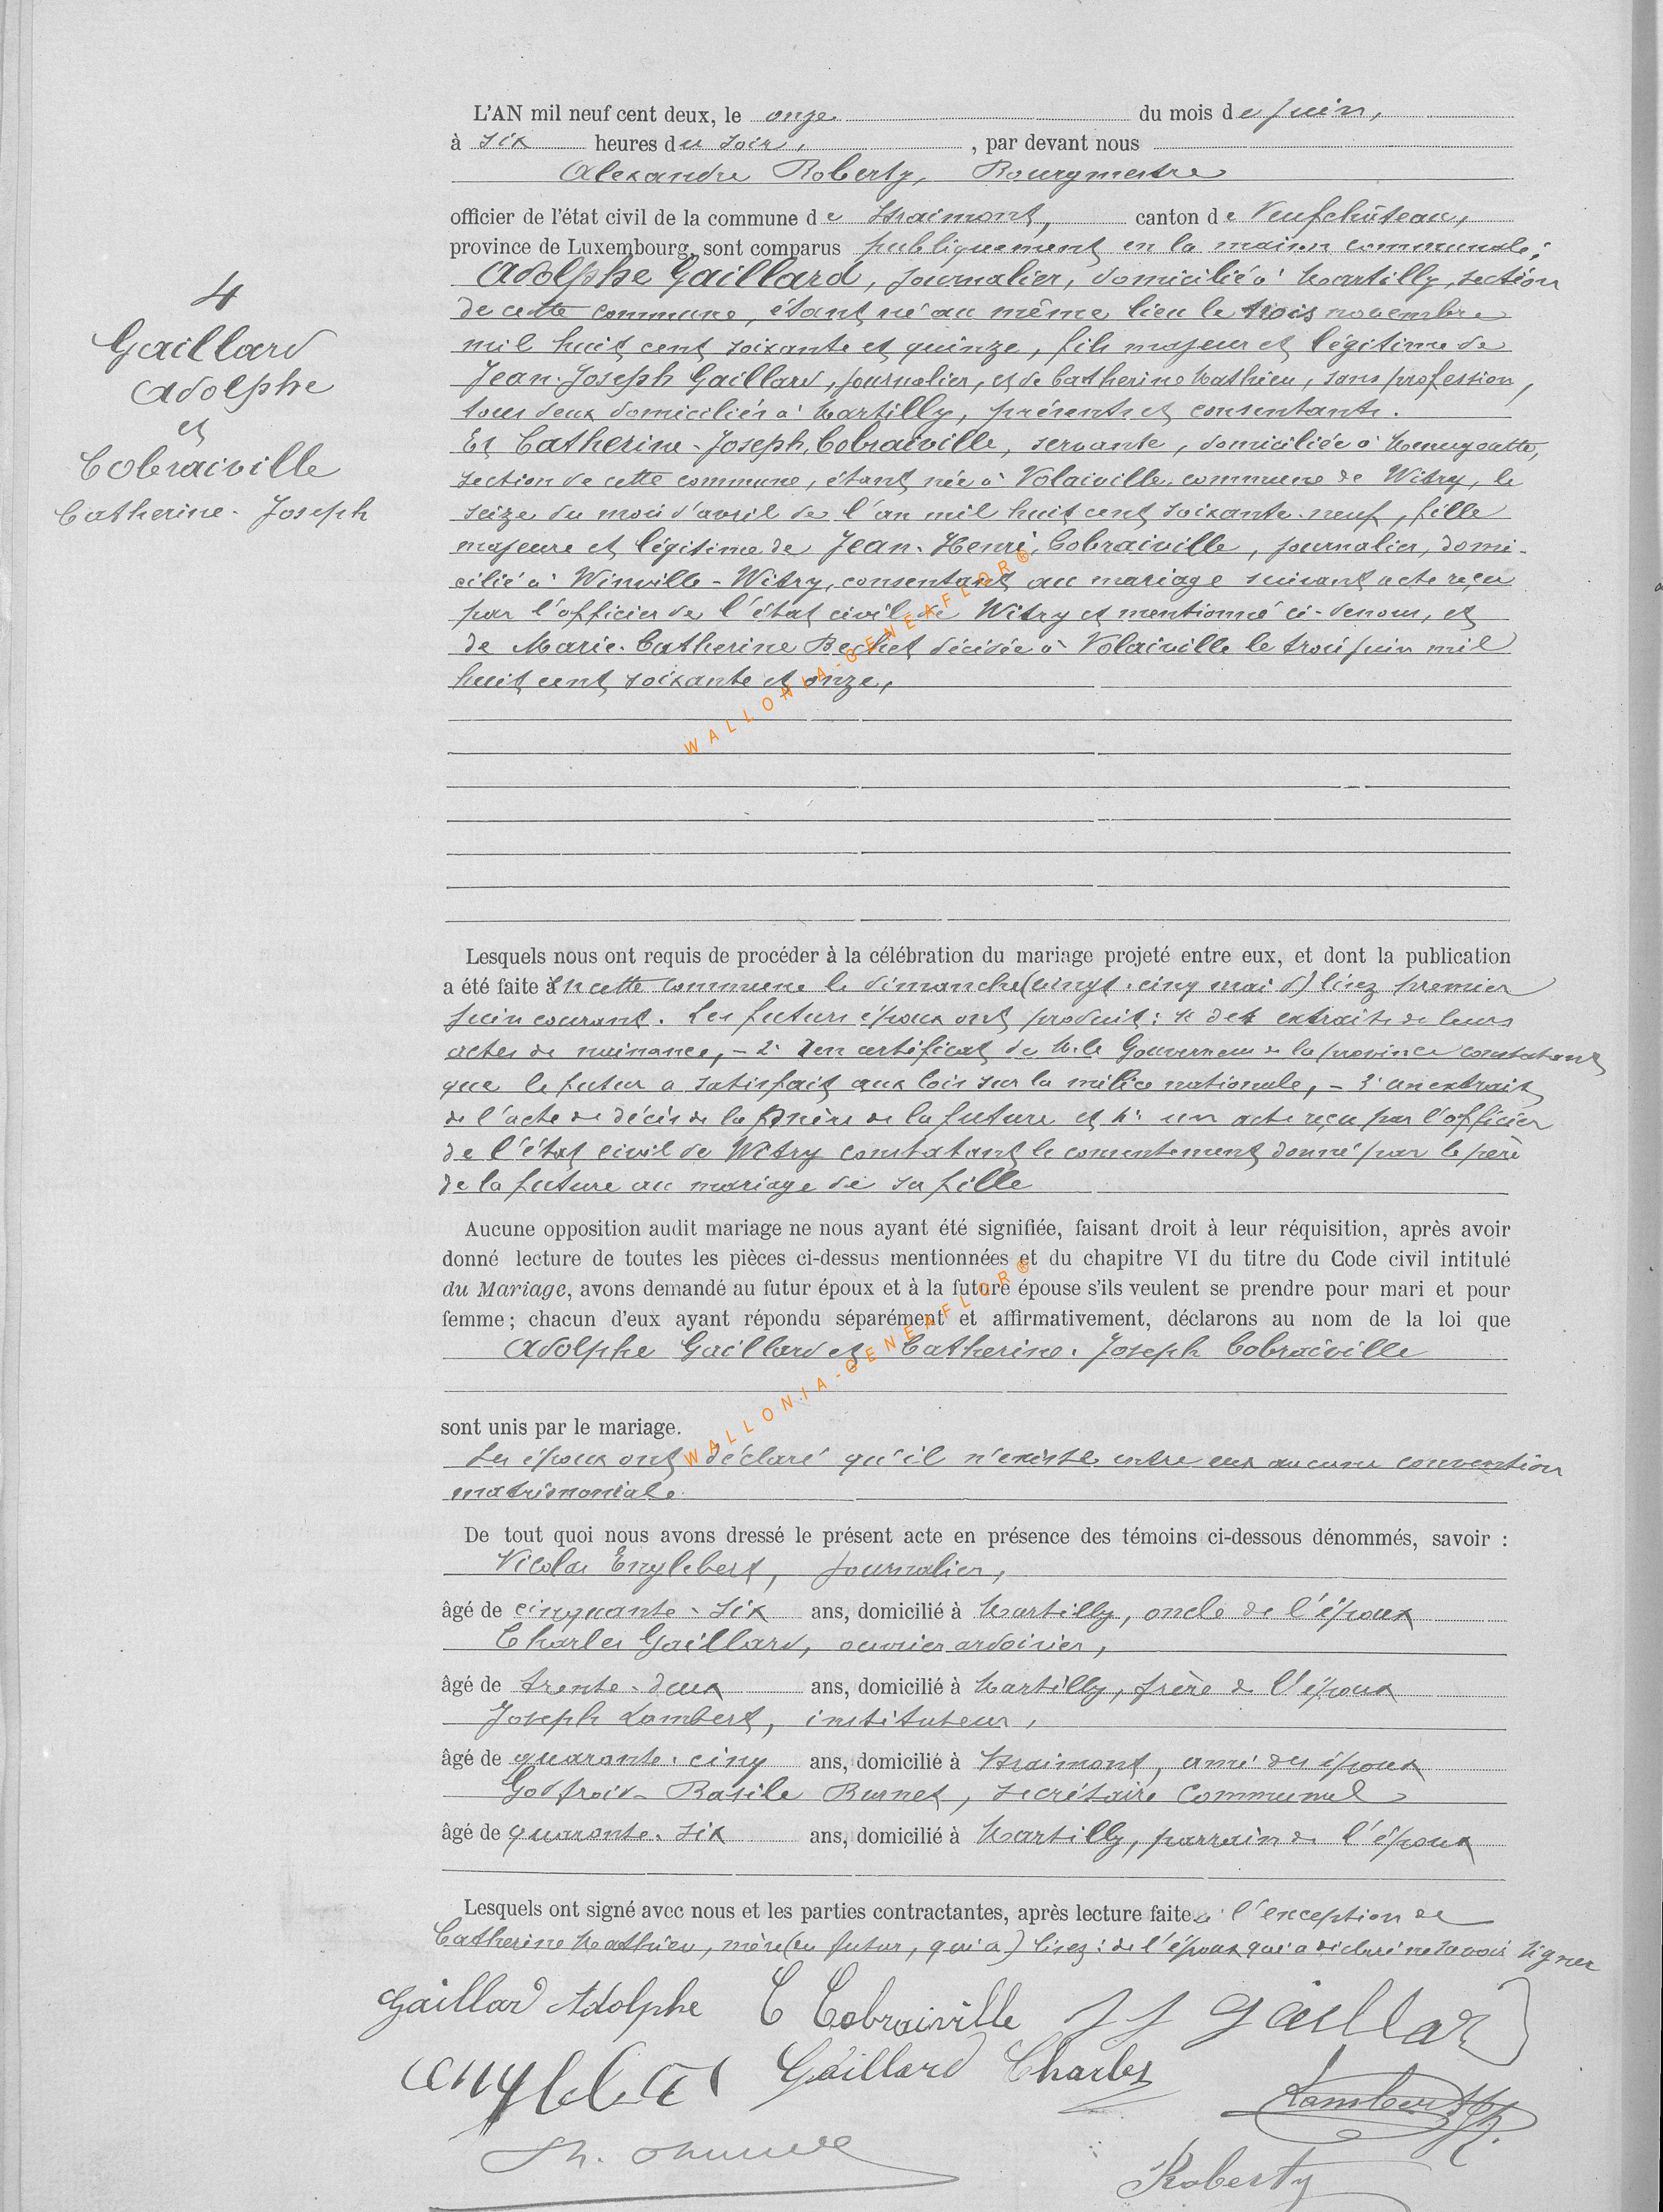 L'AN mil neuf cent deux, le onze du mois de juin,
à six heures du soir, , par devant nous
Alexandre Roberty, Bourgmestre
officier de l'état civil de la commune de Straimont, canton de Neufchâteau,
province de Luxembourg, sont comparus publiquement en la maison communale:
Adolphe Gaillard, journalier, domicilié à Martilly, section
de cette commune, étant né au même lieu le trois novembre
mil huit cent soixante et quinze, fils majeur et légitime de
Jean-Joseph Gaillard, journalier, et de Catherine Mathieu, sans profession,
tous deux domiciliés à Martilly, présents et consentants.
Et Catherine-Joseph Cobraiville, servante, domiciliée à
section de cette commune, étant née à Volaiville, commune de Witry, le
seize du mois d'avril de l'an mil huit cent soixante-neuf, fille
majeure et légitime de Jean-Henri Cobraiville, journalier, domi-
cilié à Winville-Witry, consentant au mariage suivant acte reçu
par l'officier de l'état civil de Witry et mentionné ci-dessous, et
de Marie-Catherine Bechet décédée à Volaiville le trois juin mil
huit cent soixante et onze,
4
Gaillard
Adolphe
et
Cobraiville
Catherine-Joseph
WALLONIA-GENEAFLOR®
Lesquels nous ont requis de procéder à la célébration du mariage projeté entre eux, et dont la publication
a été faite en cette commune le dimanche (vingt-cinq mai d) lisez premier
juin courant. Les futurs époux ont produit: 1° des extraits de leurs
actes de naissance, - 2° un certificat de M. le Gouverneur de la province constatant
que le futur a satisfait aux lois sur la milice nationale, - 3° un extrait
de l'acte de décès de la mère de la future et 4° un acte reçu par l'officier
de l'état civil de Witry constatant le consentement donné par le père
de la future au mariage de sa fille
Aucune opposition audit mariage ne nous ayant été signifiée, faisant droit à leur réquisition, après avoir
donné lecture de toutes les pièces ci-dessus mentionnées et du chapitre VI du titre du Code civil intitulé
du Mariage, avons demandé au futur époux et à la future épouse s'ils veulent se prendre pour mari et pour
femme; chacun d'eux ayant répondu séparément et affirmativement, déclarons au nom de la loi que
Adolphe Gaillard et Catherine-Joseph Cobraiville
WALLONIA-GENEAFLOR®
sont unis par le mariage.
Les époux ont déclaré qu'il n'existe entre eux aucune convention
matrimoniale.
De tout quoi nous avons dressé le présent acte en présence des témoins ci-dessous dénommés, savoir :
Nicolas Englebert, journalier,
âgé de cinquante-six ans, domicilié à Martilly, oncle de l'époux
Charles Gaillard, ouvrier ardoisier,
âgé de trente-deux ans, domicilié à Martilly, frère de l'époux
Joseph Lambert, instituteur,
âgé de quarante-cinq ans, domicilié à Straimont, ami des époux
Godfroid-Basile Burnet, secrétaire communal
âgé de quarante-six ans, domicilié à Martilly, parrain de l'époux
Lesquels ont signé avec nous et les parties contractantes, après lecture faite à l'exception de
Catherine Mathieu, mère (du futur, qui a) lisez: de l'époux qui a déclaré ne savoir signer
Gaillard Adolphe C Cobraiville J J Gaillard
Englebert Gaillard Charles
Lambert
Roberty